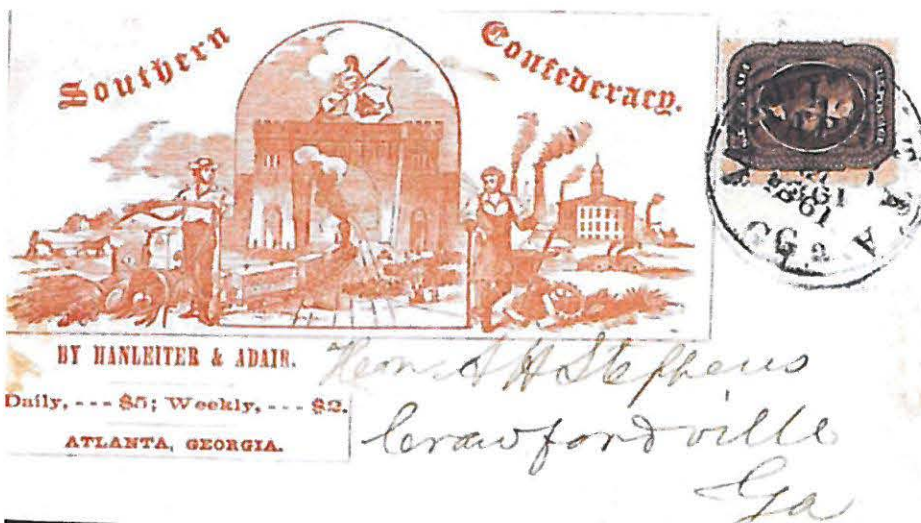 Southern Confederacy.
BY HANLEITER & ADAIR.
Daily, --- $5; Weekly, --- $2.
ATLANTA, GEORGIA.
Hon. A H Stephens
Crawfordville
Ga
1861